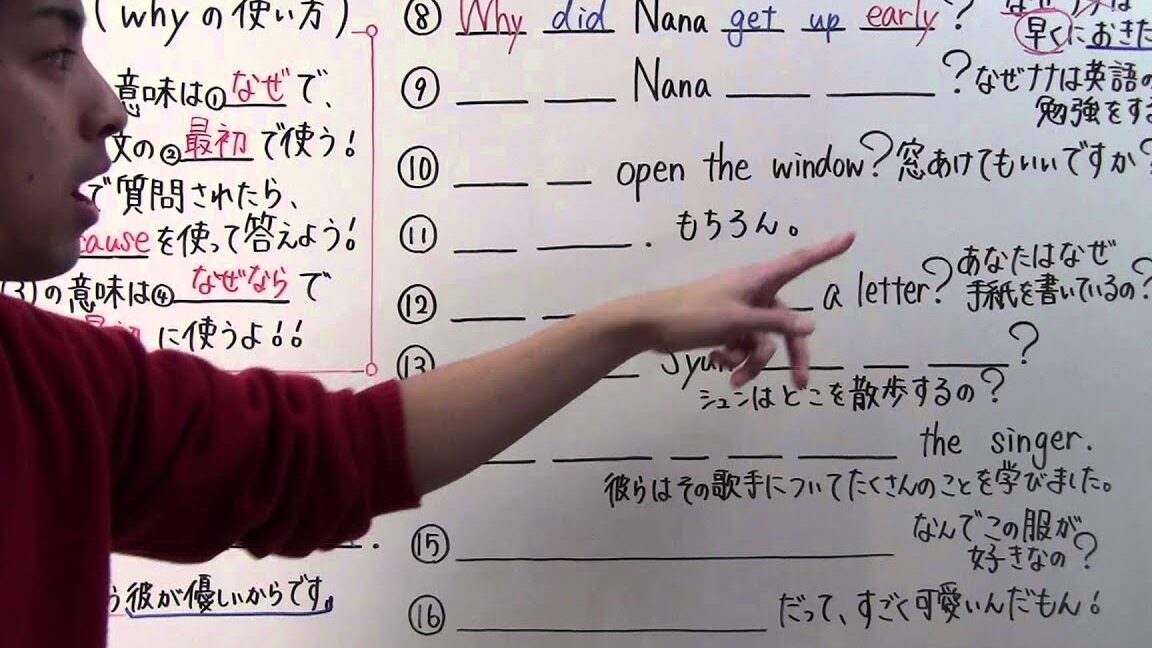 (whyの使い方)
意味は①なぜで、
文の②最初で使う!
で質問されたら、
causeを使って答えよう!
(3)の意味は④なぜならで
最初に使うよ!!
う彼が優しいからです。
⑧ Why did Nana get up early?
早くにおきた
⑨ ___ ___ Nana ___ ___?なぜナナは英語の
勉強をする
⑩ ___ ___ open the window?窓あけてもいいですか?
⑪ ___ ___. もちろん。
⑫ ___ a letter?あなたはなぜ
手紙を書いているの?
⑬ ___ Syun ___ ___ ___?
シュンはどこを散歩するの?
___ ___ ___ ___ ___ the singer.
彼らはその歌手についてたくさんのことを学びました。
⑮ ___ なんでこの服が
好きなの?
⑯ ___ だって、すごく可愛いんだもん!